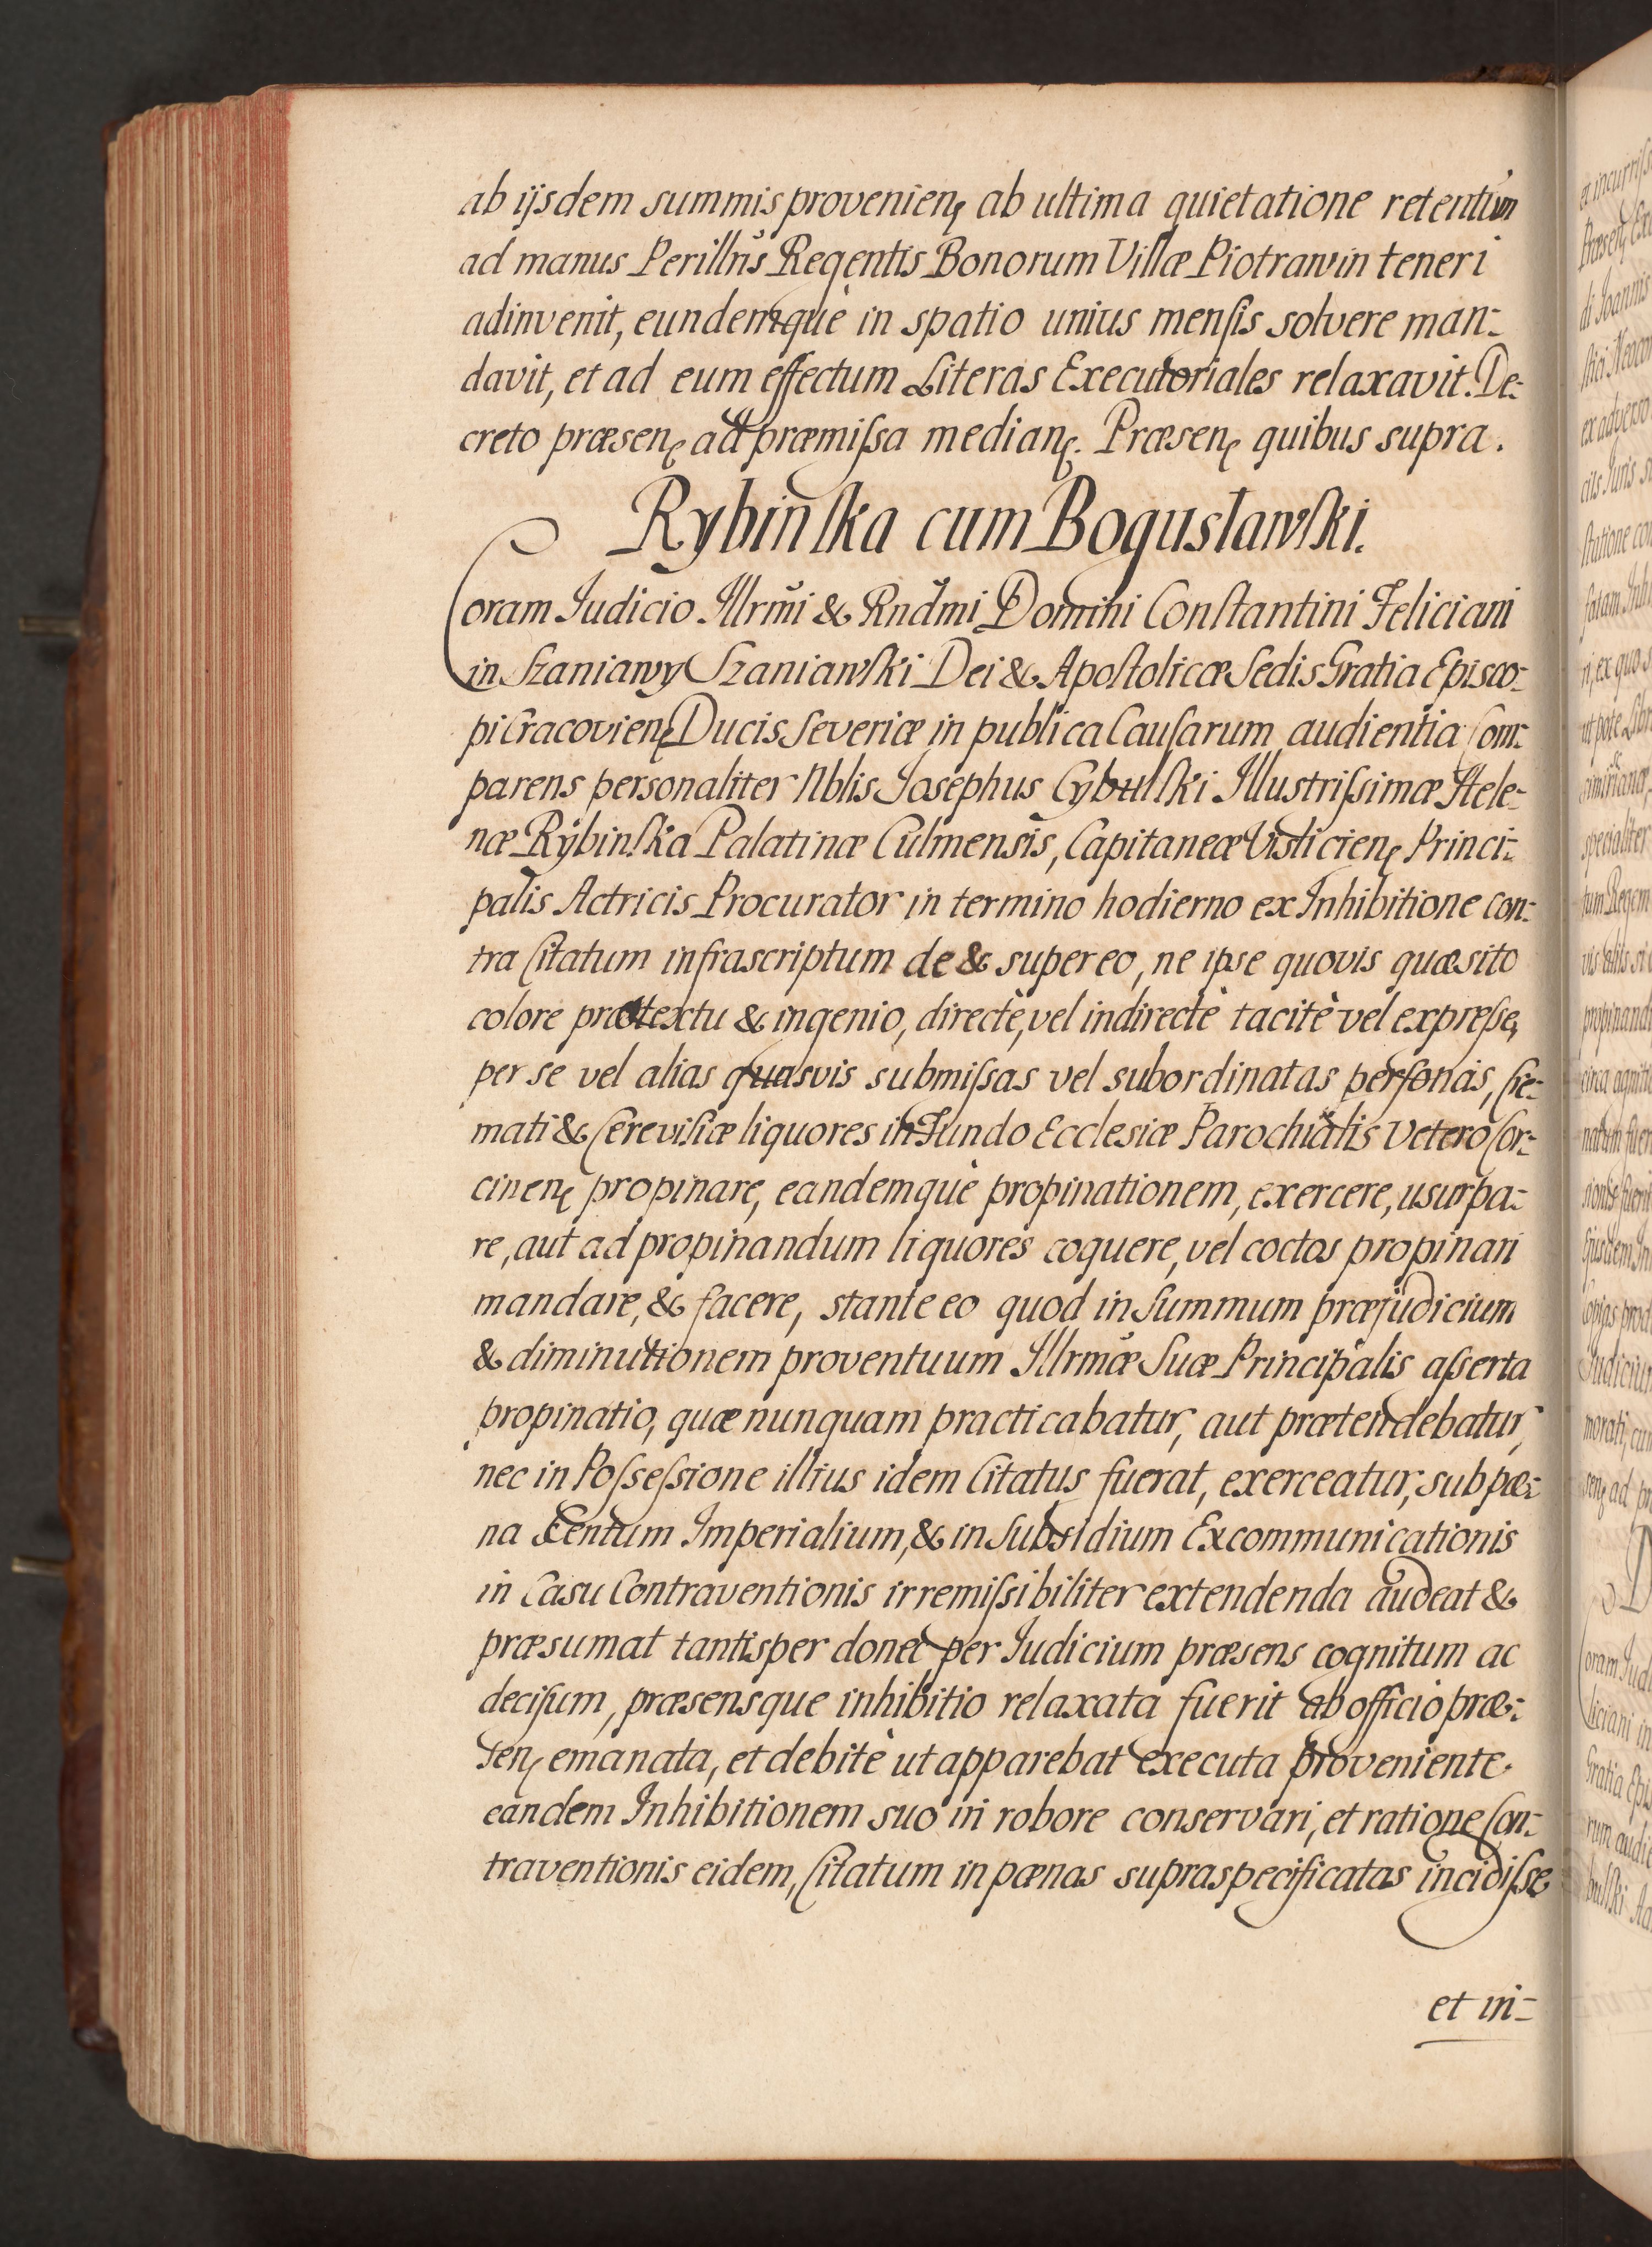 ab ijsdem summis provenienȩ ab ultima quietatione retentum
ad manus Perillrĩs Regentis Bonorum Villæ Piotrawin teneri
adinvenit, eundemquè in spatio unius menſis solvere man-
davit, et ad eum effectum Literas Executoriales relaxavit. De-
creto præsenȩ ad præmiſsa medianȩ. Præsenȩ quibus supra.
Rybinſka cum Bogusławſki.
Coram Iudicio Illrm̃i & Rnd̃mi Domini Conſtantini Feliciani
in Szaniawy Szaniawſki Dei & Apoſtolicæ Sedis Gratia Episco-
pi Cracovienȩ Ducis Severiæ in publica Cauſarum audientia Com-
parens personaliter Nblis Josephus Cybulſki Illustriſsimæ Hele-
næ Rybinſka Palatinæ Culmensis, Capitaneæ Visliciens Princi-
palis Actricis Procurator in termino hodierno ex Inhibitione con-
tra Citatum infrascriptum de & super eo, ne ipse quovis quæsito
colore prætextu & ingenio, directè, vel indirectè tacitè vel expreſse,
per se vel alias quasvis submiſsas vel subordinatas perſonas, Cre-
mati & Cereviſiæ liquores in Fundo Ecclesiæ Parochialis Vetero Cor-
cinenȩ propinare, eandemquè propinationem, exercere, usurpa-
re, aut ad propinandum liquores coquere, vel coctos propinari
mandare, & facere, stante eo quod in Summum præjudicium
& diminutionem proventuum Illrm̃æ Suæ Principalis aſserta
propinatio, quæ nunquam practicabatur, aut prætendebatur,
nec in Poſseſsione illius idem Citatus fuerat, exerceatur, sub pæ-
na Centum Imperialium, & in Subsidium Excommunicationis
in Casu Contraventionis irremiſsibiliter extendenda audeat &
præsumat tantisper donec per Iudicium præsens cognitum ac
deciſum, præsensque inhibitio relaxata fuerit ab officio præ-
senȩ emanata, et debitè ut apparebat executa proveniente
eandem Inhibitionem suo in robore conservari, et ratione Con-
traventionis eidem, Citatum in pænas supraspecificatas incidiſse
et in-